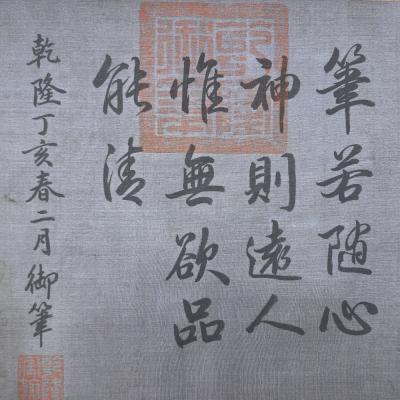 筆若随心
神則遠人
惟無欲品
能清
乾隆丁亥春二月御筆